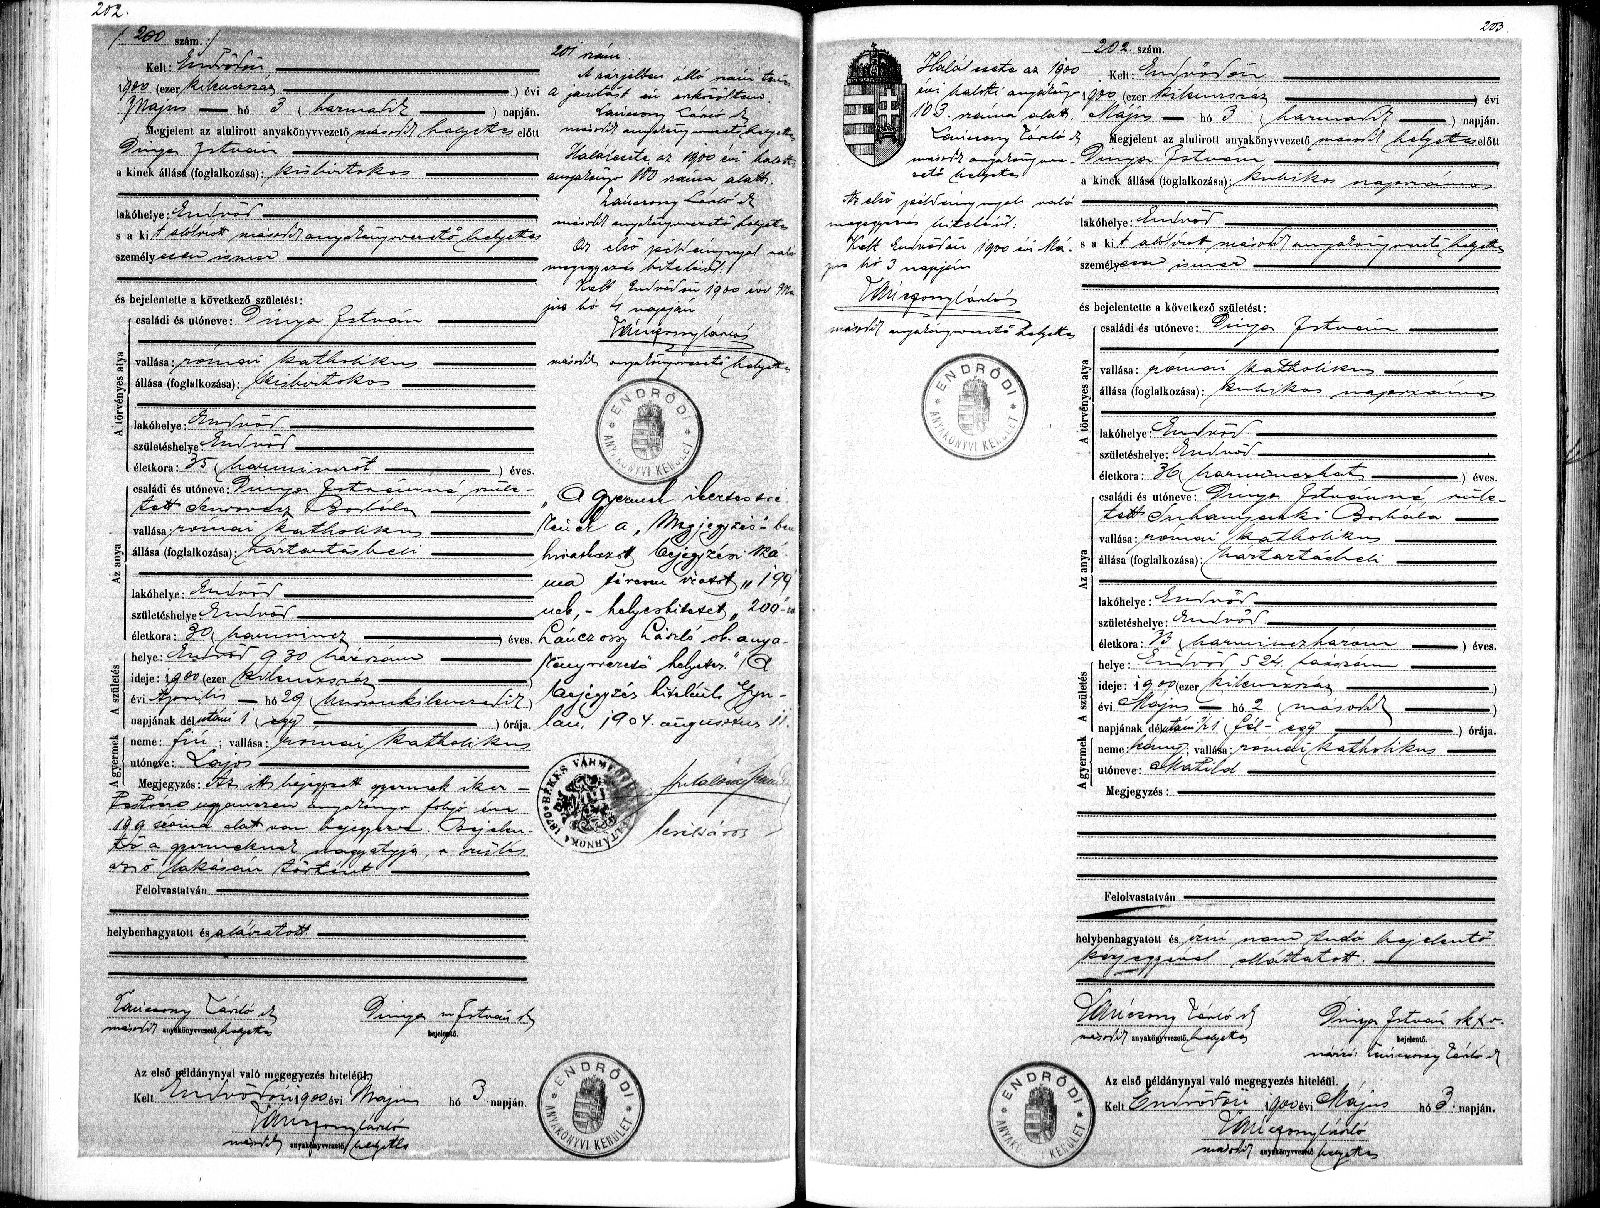 202.
200 szám.
Kelt: Endrődön
1900 (ezer kilenczszáz) évi
Május hó 3 (harmadik) napján.
Megjelent az alulirott anyakönyvvezető második helyettes előtt
Dinya István
a kinek állása (foglalkozása): kisbirtokos
lakóhelye: Endrőd
s a kit alólirott második anyakönyvvezető helyettes
személyesen ismer
és bejelentette a következő születést:
A törvényes atya
családi és utóneve: Dinya István
vallása: római katholikus
állása (foglalkozása): kisbirtokos
lakóhelye: Endrőd
születéshelye: Endrőd
életkora: 35 (harminczöt) éves.
Az anya
családi és utóneve: Dinya Istvánné szüle-
tett Borbála
vallása: római katholikus
állása (foglalkozása): háztartásbeli
lakóhelye: Endrőd
születéshelye: Endrőd
életkora: 30 (harmincz) éves.
A születés
helye: Endrőd 930 házszám
ideje: 1900 (ezer kilenczszáz)
évi Április hó 29 (huszonkilenczedik)
napjának délutáni 1 (egy) órája.
A gyermek
neme: fiú; vallása: római katholikus
utóneve: Lajos
Megjegyzés: Az itt bejegyzett gyermek iker-
ugyanezen anyakönyv folyó évi
199 száma alatt van bejegyezve. Bejelen-
tő a gyermeknek nagyatyja, a szülés
az ő lakásán történt.
Felolvastatván
helybenhagyatott és aláiratott.
Lánczossy László sk
második anyakönyvvezető helyettes
Dinya István sk
bejelentő.
Az első példánynyal való megegyezés hiteléül.
Kelt Endrődön 1900 évi Május hó 3 napján.
Lánczossy László
második anyakönyvvezető helyettes
ENDRŐDI ANYAKÖNYVI KERÜLET
201 szám.
A szélben álló szám
a javitást én eszközöltem.
Lánczossy László sk
második anyakönyvvezető helyettes
Halálesete az 1900 évi halotti
anyakönyv 100 száma alatt.
Lánczossy László sk
második anyakönyvvezető helyettes
Az első példánynyal való
megegyezés hiteléül.
Kelt Endrődön 1900 évi Má-
jus hó 4 napján
Lánczossy László
második anyakönyvvezető helyettes
ENDRŐDI ANYAKÖNYVI KERÜLET
„A gyermek ikertestvé-
rének a „Megjegyzés"-ben
hivatkozott bejegyzési szá-
ma tévesen iratott „199"
nek, - helyesbittetett „200"-ra
Lánczossy László oh. anya-
könyvvezető helyettes." A
bejegyzés hiteléül Gyu-
lán, 1904. augusztus 11.
BÉKÉS VÁRMEGYE 1870
203.
Halálesete az 1900
évi halotti anyakönyv
103. száma alatt.
Lánczossy László sk
második anyakönyvve-
zető helyettes
Az első példánynyal való
megegyezés hiteléül.
Kelt Endrődön 1900 évi Má-
jus hó 3 napján
Lánczossy László
második anyakönyvvezető helyettes
ENDRŐDI ANYAKÖNYVI KERÜLET
202 szám.
Kelt: Endrődön
1900 (ezer kilenczszáz) évi
Május hó 3 (harmadik) napján.
Megjelent az alulirott anyakönyvvezető második helyettes előtt
Dinya István
a kinek állása (foglalkozása): kubikos napszámos
lakóhelye: Endrőd
s a kit alólirott második anyakönyvvezető helyettes
személyesen ismer
és bejelentette a következő születést:
A törvényes atya
családi és utóneve: Dinya István
vallása: római katholikus
állása (foglalkozása): kubikos napszámos
lakóhelye: Endrőd
születéshelye: Endrőd
életkora: 36 (harminczhat) éves.
Az anya
családi és utóneve: Dinya Istvánné szüle-
tett Suhanyecki Borbála
vallása: római katholikus
állása (foglalkozása): háztartásbeli
lakóhelye: Endrőd
születéshelye: Endrőd
életkora: 33 (harminczharom) éves.
A születés
helye: Endrőd 524 házszám
ideje: 1900 (ezer kilenczszáz)
évi Május hó 2 (második)
napjának délutáni ½1 (fél-egy) órája.
A gyermek
neme: leány; vallása: római katholikus
utóneve: Matild
Megjegyzés:
Felolvastatván
helybenhagyatott és irni nem tudó bejelentő
kézjegyével elláttatott.
Lánczossy László sk
második anyakönyvvezető helyettes
Dinya István sk x v.
bejelentő.
névíró: Lánczossy László sk
Az első példánynyal való megegyezés hiteléül.
Kelt Endrődön 1900 évi Május hó 3 napján.
Lánczossy László
második anyakönyvvezető helyettes
ENDRŐDI ANYAKÖNYVI KERÜLET